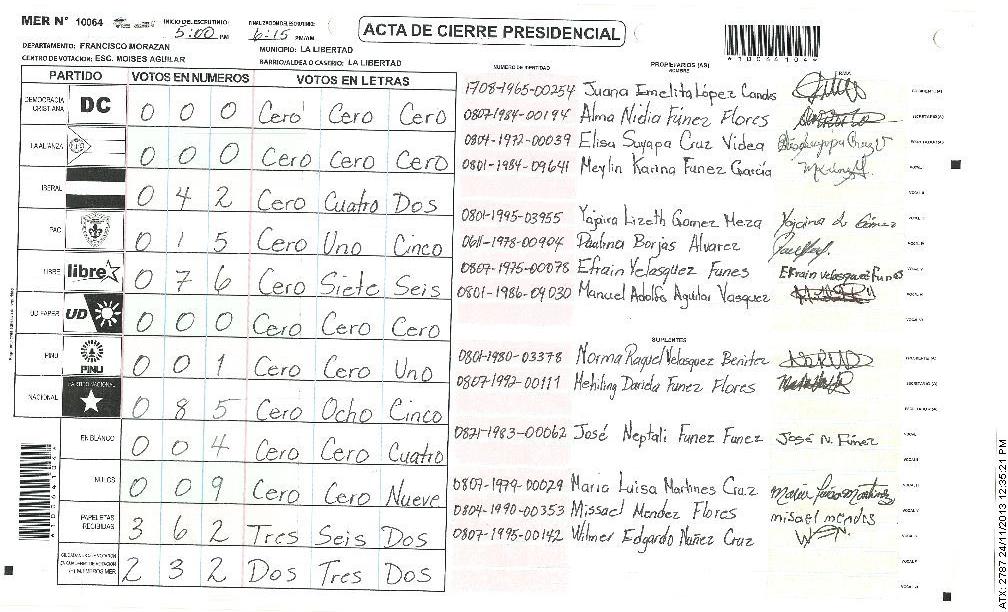 MER Nº 10064
INICIO DEL ESCRUTINIO: 5:00 PM
FINALIZACION DEL ESCRUTINIO: 6:15 PM/AM
ACTA DE CIERRE PRESIDENCIAL
DEPARTAMENTO: FRANCISCO MORAZAN
MUNICIPIO: LA LIBERTAD
CENTRO DE VOTACION: ESC. MOISES AGUILAR
BARRIO/ALDEA O CASERIO: LA LIBERTAD
PARTIDO VOTOS EN NUMEROS VOTOS EN LETRAS
DEMOCRACIA CRISTIANA DC 0 0 0 Cero Cero Cero
LA ALIANZA 0 0 0 Cero Cero Cero
LIBERAL 0 4 2 Cero Cuatro Dos
PAC 0 1 5 Cero Uno Cinco
LIBRE libre 0 7 6 Cero Siete Seis
UD FAPER UD 0 0 0 Cero Cero Cero
PINU PINU 0 0 1 Cero Cero Uno
NACIONAL PARTIDO NACIONAL 0 8 5 Cero Ocho Cinco
EN BLANCO 0 0 4 Cero Cero Cuatro
NULOS 0 0 9 Cero Cero Nueve
PAPELETAS RECIBIDAS 3 6 2 Tres Seis Dos
2 3 2 Dos Tres Dos
NUMERO DE IDENTIDAD PROPIETARIOS (AS) NOMBRE FIRMA
1708-1965-00254 Juana Emelita López Cands
0807-1984-00194 Alma Nidia Fúnez Flores
0804-1972-00039 Elisa Suyapa Cruz Videa
0801-1984-09641 Meylin Karina Funez García
0801-1995-03955 Yajaira Lizeth Gomez Meza
0611-1978-00904 Paulina Borjas Alvarez
0807-1975-00078 Efrain Velasquez Funes Efrain velasquez Funes
0801-1986-09030 Manuel Adolfo Aguilar Vasquez
SUPLENTES
0801-1980-03378 Norma Raquel Velasquez Benitez
0807-1992-00111 Hehiling Dariela Funez Flores
0821-1983-00062 José Neptali Funez Funez José N. Fúnez
0807-1979-00029 Maria Luisa Martines Cruz
0804-1990-00353 Missael Mendez Flores misael mendes
0807-1995-00142 Wilmer Edgardo Nuñez Cruz
ATX: 2787 24/11/2013 12:35:21 PM